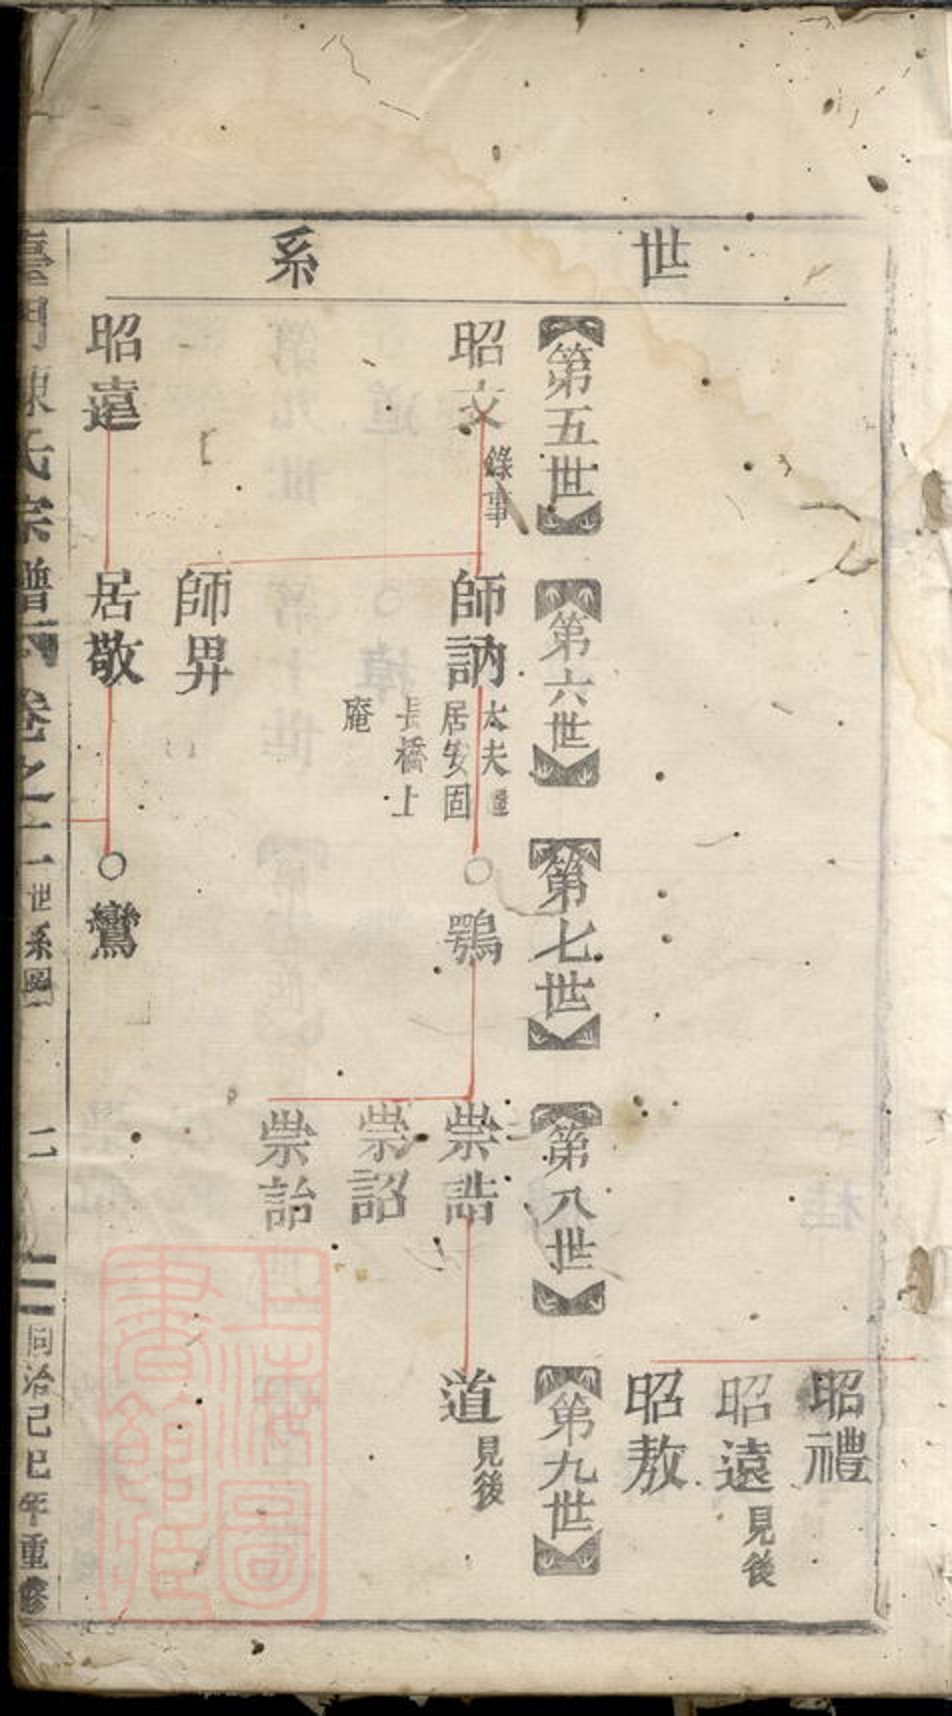 世系
昭禮
昭遠 見後
昭敖
第五世
第六世
第七世
第八世
第九世
昭文 錄事
師訥 大夫
居安固
長橋上
庵
○鶚
崇誥
道 見後
崇詔
崇詒
師畀
昭遠
居敬
○鸞
臺門陳氏宗譜
卷之一
世系圖
二
同治己巳年重修
上海圖書館藏